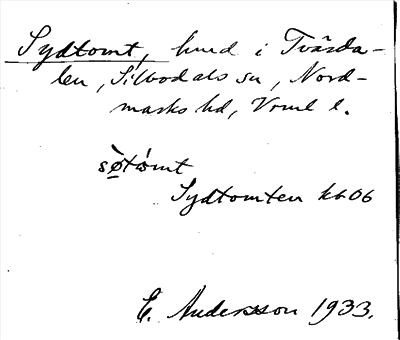 Sydtomt, hmd i Tvärda-
len, Sillbodals sn, Nord-
marks hd, Vrml l.
sø̀tómt
Sydtomten kbr 06
E. Andersson 1933.